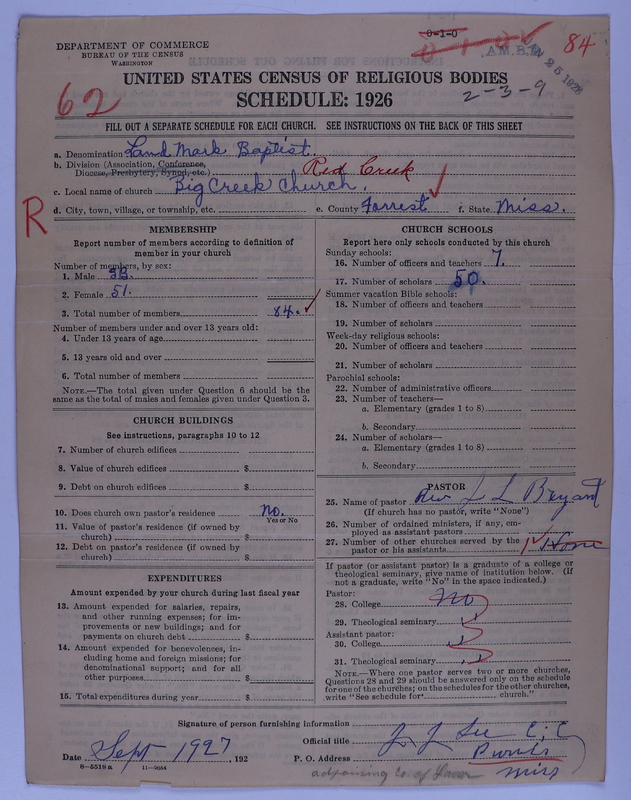 0-1-0
84
DEPARTMENT OF COMMERCE
BUREAU OF THE CENSUS
WASHINGTON
A.M.B.
62
UNITED STATES CENSUS OF RELIGIOUS BODIES
2-3-9
SCHEDULE: 1926
FILL OUT A SEPARATE SCHEDULE FOR EACH CHURCH. SEE INSTRUCTIONS ON THE BACK OF THIS SHEET
a. Denomination Land Mark Baptist
b. Division (Association, Conference, Diocese, Presbytery, Synod, etc.) Red Creek
c. Local name of church Big Creek Church.
R
d. City, town, village, or township, etc. e. County Forrest f. State Miss.
MEMBERSHIP
Report number of members according to definition of
member in your church
Number of members, by sex:
1. Male 33.
2. Female 51.
3. Total number of members 84.
Number of members under and over 13 years old:
4. Under 13 years of age
5. 13 years old and over
6. Total number of members
NOTE.—The total given under Question 6 should be the
same as the total of males and females given under Question 3.
CHURCH BUILDINGS
See instructions, paragraphs 10 to 12
7. Number of church edifices
8. Value of church edifices $
9. Debt on church edifices $
10. Does church own pastor's residence No.
Yes or No
11. Value of pastor's residence (if owned by
church) $
12. Debt on pastor's residence (if owned by
church) $
EXPENDITURES
Amount expended by your church during last fiscal year
13. Amount expended for salaries, repairs,
and other running expenses; for im-
provements or new buildings; and for
payments on church debt $
14. Amount expended for benevolences, in-
cluding home and foreign missions; for
denominational support; and for all
other purposes $
15. Total expenditures during year $
CHURCH SCHOOLS
Report here only schools conducted by this church
Sunday schools:
16. Number of officers and teachers 7.
17. Number of scholars 50.
Summer vacation Bible schools:
18. Number of officers and teachers
19. Number of scholars
Week-day religious schools:
20. Number of officers and teachers
21. Number of scholars
Parochial schools:
22. Number of administrative officers
23. Number of teachers—
a. Elementary (grades 1 to 8)
b. Secondary
24. Number of scholars—
a. Elementary (grades 1 to 8)
b. Secondary
PASTOR
25. Name of pastor Rev L L Bryant
(If church has no pastor, write "None")
26. Number of ordained ministers, if any, em-
ployed as assistant pastors
27. Number of other churches served by the
pastor or his assistants None
If pastor (or assistant pastor) is a graduate of a college or
theological seminary, give name of institution below. (If
not a graduate, write "No" in the space indicated.)
Pastor:
28. College No
29. Theological seminary
Assistant pastor:
30. College
31. Theological seminary
NOTE.—Where one pastor serves two or more churches,
Questions 28 and 29 should be answered only on the schedule
for one of the churches; on the schedules for the other churches,
write "See schedule for church."
Signature of person furnishing information
Official title J J Lee C.C
Date Sept 1927, 192 P. O. Address Purvis
Miss
8-5518a 11-9864
adjoining Co. of Lamar